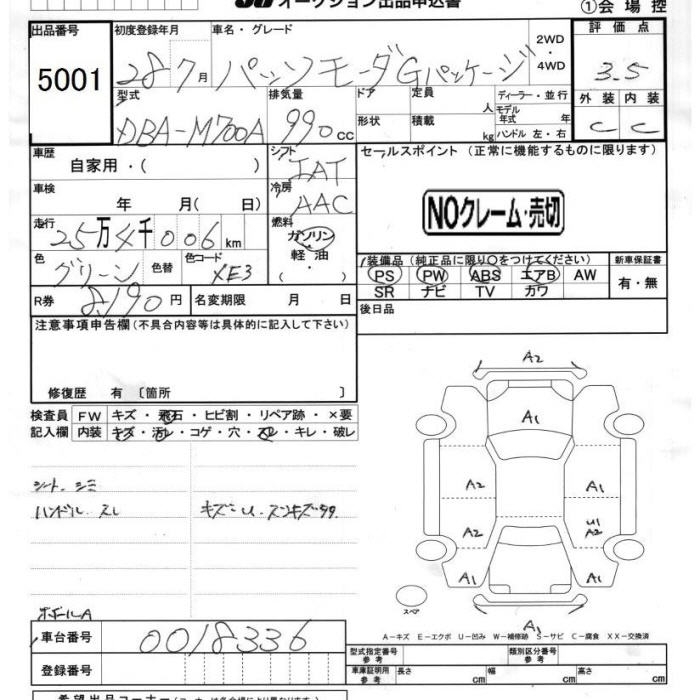 オークション出品申込書
①会場控
出品番号
5001
初度登録年月
28 7月
車名・グレード
パッソモーダGパッケージ
2WD
・
4WD
評価点
3.5
外装 内装
C C
型式
DBA-M700A
排気量
990cc
ドア
形状
定員
人
積載
kg
ディーラー・並行
モデル
年式 年
ハンドル 左・右
車歴
自家用・( )
シフト
IAT
車検
年 月( 日)
冷房
AAC
走行
25万4千006km
燃料
ガソリン
・
軽油
・
( )
色
グリーン
色替
色コード
XE3
R券
8,190円
名変期限 月 日
セールスポイント (正常に機能するものに限ります)
NOクレーム・売切
装備品(純正品に限り○をつけてください)
PS PW ABS エアB AW
SR ナビ TV カワ
新車保証書
有・無
後日品
注意事項申告欄(不具合内容等は具体的に記入して下さい)
修復歴 有 〔箇所 〕
検査員 FW キズ・飛石・ヒビ割・リペア跡・×要
記入欄 内装 キズ・汚レ・コゲ・穴・スレ・キレ・破レ
シート、シミ
ハンドル スレ
A2
A1
A2
A1
A2
U1
A2
A1
A1
A1
スペア
車台番号
0018336
登録番号
A−キズ E−エクボ U−凹み W−補修跡 S−サビ C−腐食 XX−交換済
型式指定番号
参考
類別区分番号
参考
車庫証明用
参考
長さ cm
幅 cm
高さ cm